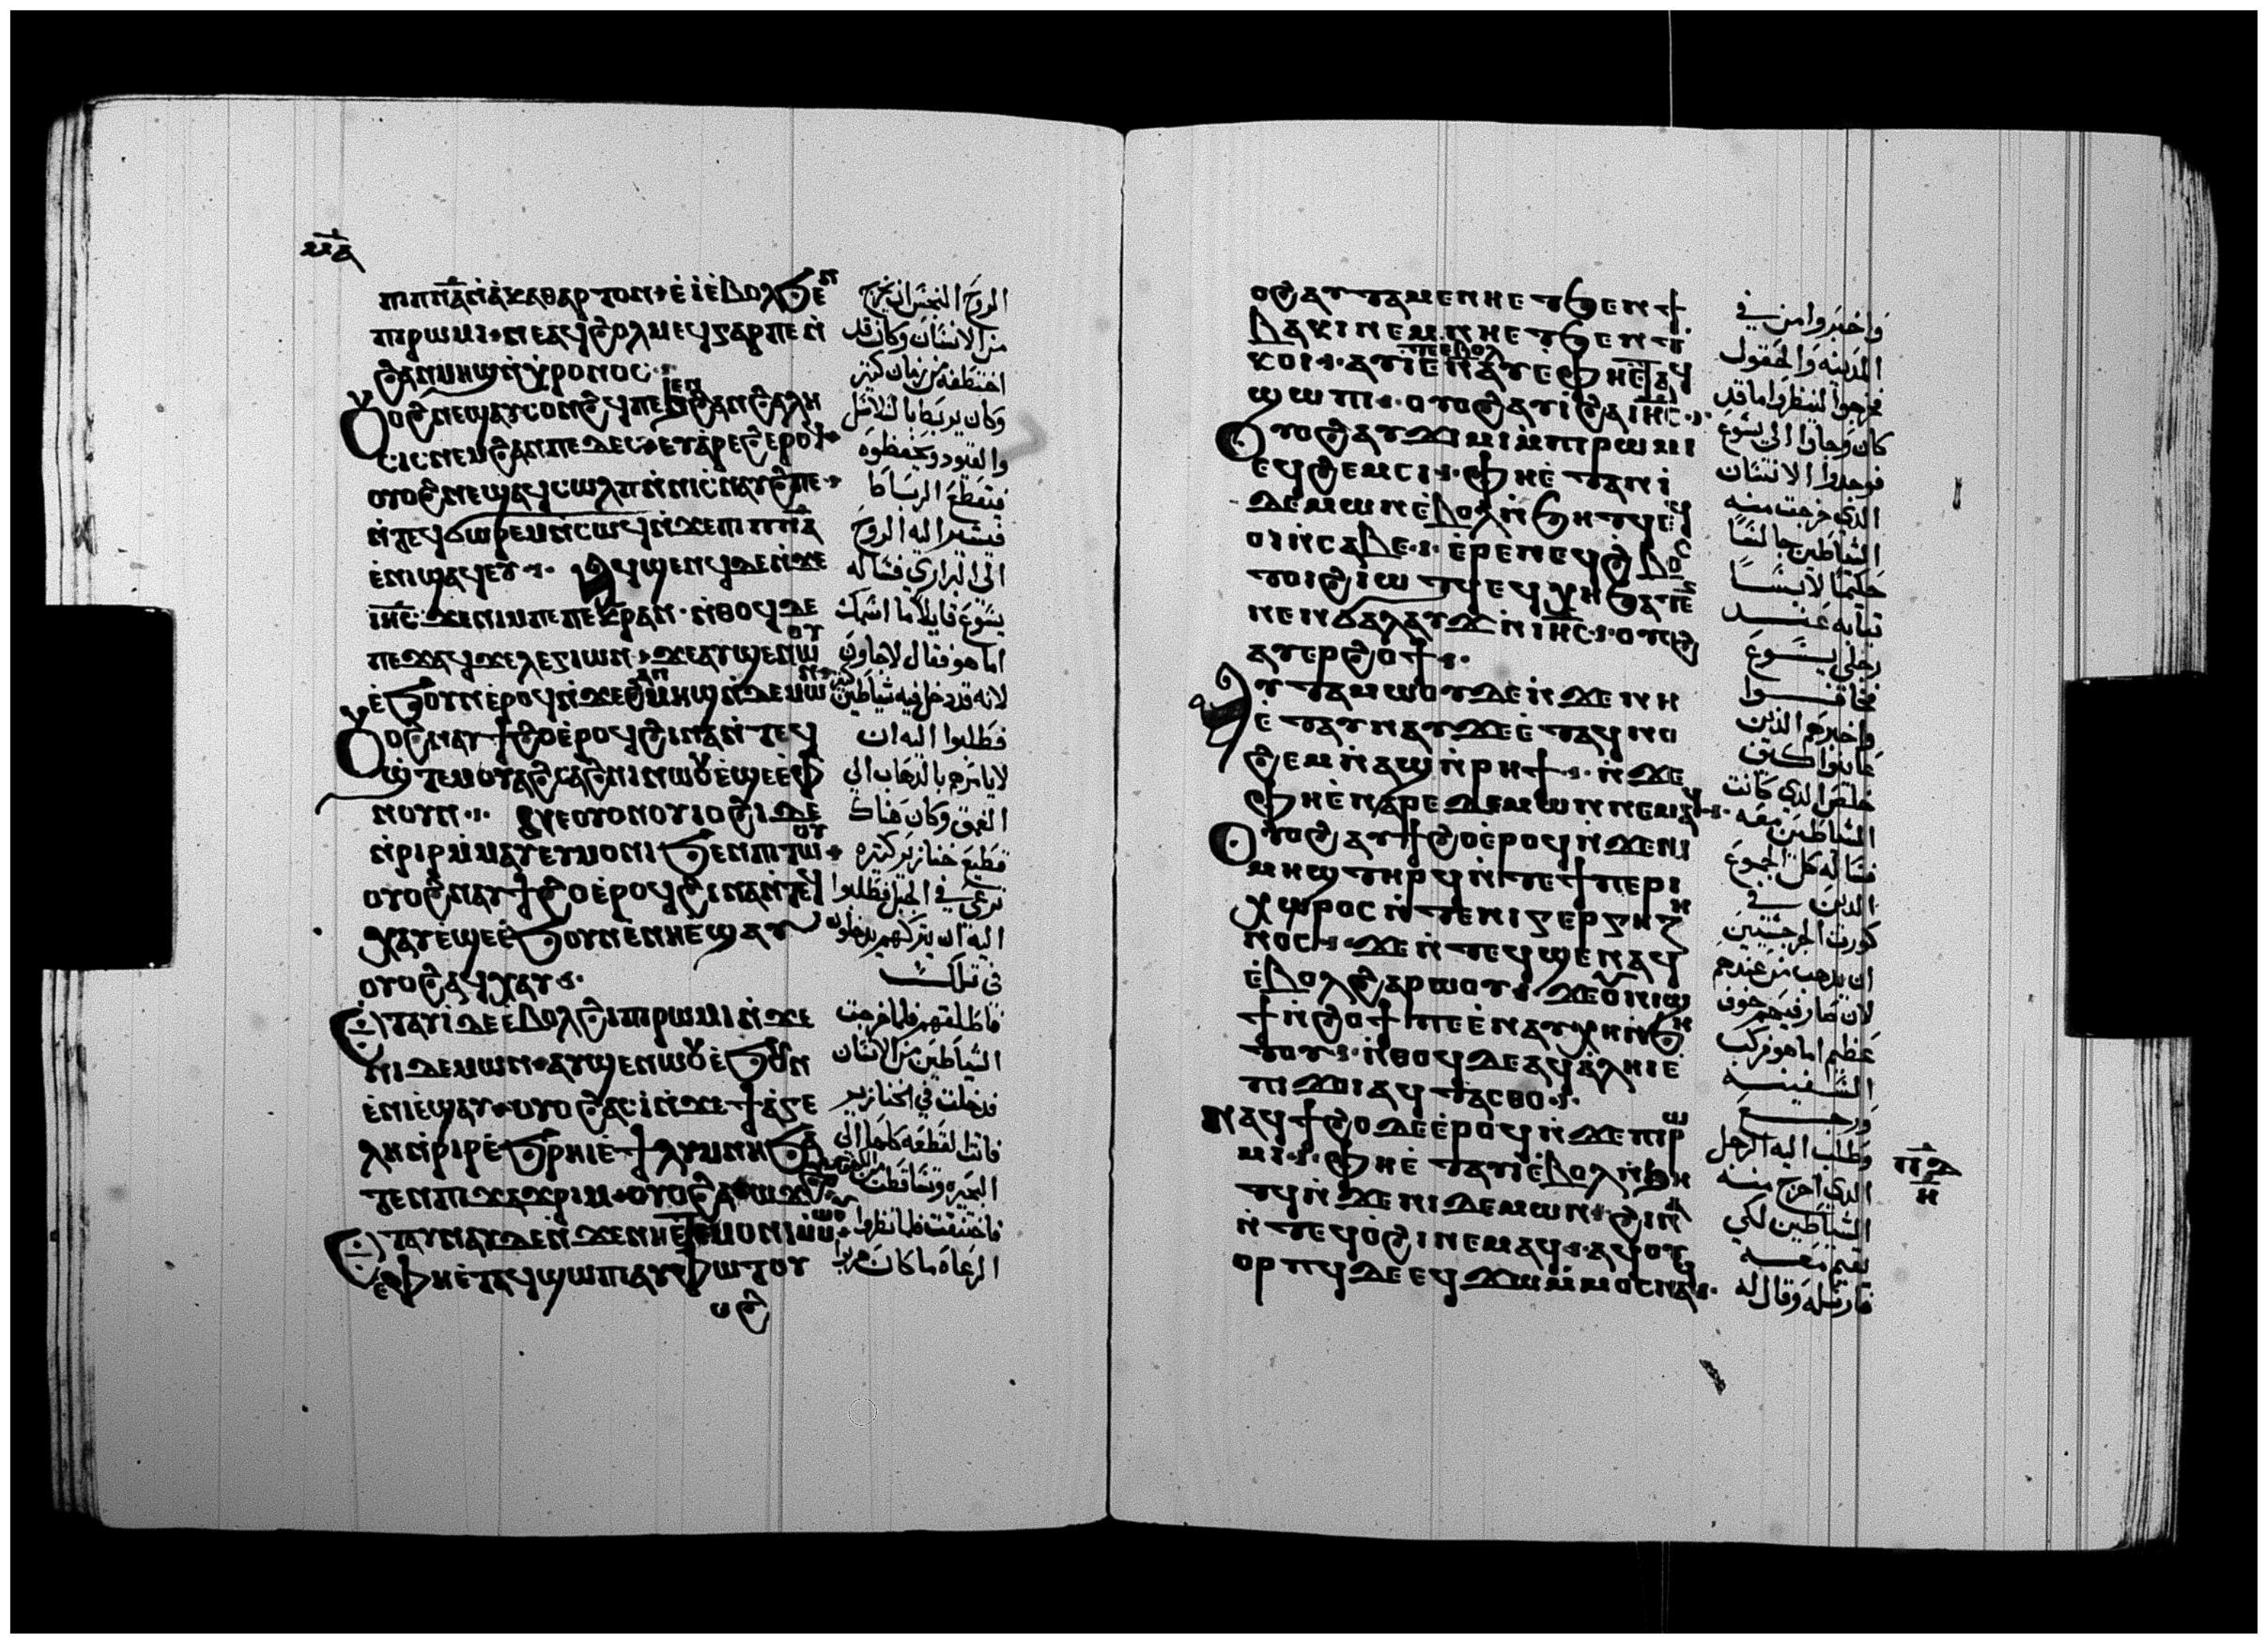 ⲙⲁ
ⲡⲓⲡⲛⲁ ⲛⲁⲕⲁⲑⲁⲣⲧⲟⲛ ⲉⲓ ⲉⲃⲟⲗ ϧⲉⲛ
ⲡⲓⲣⲱⲙⲓ ⲛⲉⲁϥϩⲟⲗⲙⲉϥ ⲅⲁⲣ ⲡⲉ ⲛ
ϩⲁⲛⲙⲏϣ ⲛⲭⲣⲟⲛⲟⲥ
ⲟⲩⲟϩ ⲛⲉϣⲁⲩⲥⲟⲛϩϥ ⲡⲉ ϧⲉⲛ ϩⲁⲛϩⲁⲗⲏ
ⲥⲓⲥ ⲛⲉⲙ ϩⲁⲛⲡⲉⲇⲉⲥ ⲉⲩⲁⲣⲉϩ ⲉⲣⲟϥ
ⲟⲩⲟϩ ⲛⲉϣⲁϥⲥⲱⲗⲡ ⲛⲛⲓⲥⲛⲁⲩϩ ⲡⲉ
ⲛⲧⲉϥⲥⲱⲣⲉⲙ ⲛⲥⲱϥ ⲛϫⲉ ⲡⲓⲡⲛⲁ
ⲉⲛⲓϣⲁϥⲉⲩ ⲁϥϣⲉⲛϥ ⲇⲉ ⲛϫⲉ
ⲓⲏⲥ ϫⲉ ⲛⲓⲙ ⲡⲉ ⲡⲉⲕⲣⲁⲛ ⲛⲑⲟϥ ⲇⲉ
ⲡⲉϫⲁϥ ϫⲉ ⲗⲉⲅⲓⲱⲛ ϫⲉ ⲁⲩϣⲉⲛⲱⲟⲩ
ⲉϧⲟⲩⲛ ⲉⲣⲟϥ ⲛϫⲉ ϩⲁⲛⲙⲏϣ ⲛⲇⲉⲙⲱⲛ
ⲟⲩⲟϩ ⲛⲁⲩϯϩⲟ ⲉⲣⲟϥ ϩⲓⲛⲁ ⲛⲧⲉϥ
ϣⲧⲉⲙⲟⲩⲁϩⲥⲁϩⲛⲓ ⲛⲱⲟⲩ ⲉϣⲉ ⲉⲫ
ⲛⲟⲩⲛ ⲛⲉⲟⲩⲟⲛ ⲟⲩⲓⲟϩⲓ ⲇⲉ
ⲛⲣⲓⲣ ⲙⲙⲁⲩ ⲉⲩⲙⲟⲛⲓ ϧⲉⲛ ⲡⲓⲧⲱⲟⲩ
ⲟⲩⲟϩ ⲛⲁⲩϯϩⲟ ⲉⲣⲟϥ ϩⲓⲛⲁ ⲛⲧⲉϥ
ⲭⲁⲩ ⲉϣⲉ ⲉϧⲟⲩⲛ ⲉⲛⲏ ⲉϣⲁⲩ
ⲟⲩⲟϩ ⲁϥⲭⲁⲩ
ⲉⲧⲁⲩⲓ ⲇⲉ ⲉⲃⲟⲗ ϩⲓ ⲡⲓⲣⲱⲙⲓ ⲛϫⲉ
ⲛⲓⲇⲉⲙⲱⲛ ⲁⲩϣⲉⲛⲱⲟⲩ ⲉϧⲟⲩⲛ
ⲉⲛⲓⲉϣⲁⲩ ⲟⲩⲟϩ ⲁⲥⲓ ⲛϫⲉ ϯⲁⲅⲉ
ⲗⲏ ⲛⲣⲓⲣ ⲉϧⲣⲏⲓ ⲉϯⲗⲩⲙⲛⲏ ϧⲁ
ⲧⲉⲛ ⲡⲓϫⲁϫⲣⲓⲙ ⲟⲩⲟϩ ⲁⲩⲱϫϩ
ⲉⲧⲁⲩⲛⲁⲩ ⲇⲉ ⲛϫⲉ ⲛⲏ ⲉⲧⲙⲟⲛⲓ ⲙⲙⲱⲟⲩ
ⲉⲫⲏ ⲉⲧⲁϥϣⲱⲡⲓ ⲁⲩⲫⲱⲧ ⲟⲩ
ⲟϩ
الروح النجس ان يخرج
من الانسان وكان قد
اختطفه من زمان كثير
وكان يربط بالسلاسل
والقيود ويحفظوه
فيقطع الرباطا
فيسير اليه الروح
الى البراري فساله
يسوع قايلا ما اسمك
اما هو فقال لاجاون
لانه قد دخل فيه شياطين كثير
فطلبوا اليه ان
لا يامرهم بالذهاب الى
العمق وكان هناك
قطيع خنازير كثيره
ترعى في الجبل فطلبوا
اليه ان يتركهم يدخلون
في تلك
فاطلقهم فلما خرجت
الشياطين من الانسان
فدخلت في الخنازير
فاتت القطعه كلها الى
البحيره وتساقطت
فاختنقت فلما نظروا
الرعاه ما كان هربوا
ⲟϩ ⲁⲩⲧⲁⲙⲉ ⲛⲏ ⲉⲧϧⲉⲛ ϯ
ⲃⲁⲕⲓ ⲛⲉⲙ ⲛⲏ ⲉⲧϧⲉⲛ ⲧ
ⲕⲟⲓ ⲁⲩⲓ ⲉⲃⲟⲗ ⲉⲛⲁⲩ ⲉⲫⲏ ⲉⲧⲁϥ
ϣⲱⲡⲓ ⲟⲩⲟϩ ⲁⲩⲓ ϩⲁ ⲓⲏⲥ
ⲟⲩⲟϩ ⲁⲩϫⲓⲙⲓ ⲙⲡⲓⲣⲱⲙⲓ
ⲉϥϩⲉⲙⲥⲓ ⲫⲏ ⲉⲧⲁ ⲛⲓ
ⲇⲉⲙⲱⲛ ⲉⲃⲟⲗ ⲛϧⲏⲧϥ ⲉϥ
ⲟⲓ ⲛⲥⲁⲃⲉ ⲉⲣⲉ ⲛⲉϥϩⲃⲟⲥ
ⲧⲟⲓ ϩⲓⲱⲧϥ ⲉϥⲭⲏ ϧⲁⲧⲉ
ⲛⲉⲛϭⲁⲗⲁⲩϫ ⲛⲓⲏⲥ ⲟⲩⲟϩ
ⲁⲩⲉⲣϩⲟϯ
ⲁⲩⲧⲁⲙⲱⲟⲩ ⲇⲉ ⲛϫⲉ ⲛⲏ
ⲉⲧⲁⲩⲛⲁⲩ ϫⲉ ⲉⲧⲁϥⲛⲟ
ϩⲉⲙ ⲛⲁϣ ⲛⲣⲏϯ ⲛϫⲉ
ⲫⲏ ⲉⲛⲁⲣⲉ ⲇⲉⲙⲱⲛ ⲛⲉⲙⲁϥ
ⲟⲩⲟϩ ⲁⲩϯϩⲟ ⲉⲣⲟϥ ⲛϫⲉ ⲡⲓ
ⲙⲏϣ ⲧⲏⲣϥ ⲛⲧⲉ ϯⲡⲉⲣⲓ
ⲭⲱⲣⲟⲥ ⲛⲧⲉ ⲛⲓⲅⲉⲣⲅⲏ
ⲛⲟⲥ ϫⲉ ⲛⲧⲉϥϣⲉⲛⲁϥ
ⲉⲃⲟⲗ ϩⲁⲣⲱⲟⲩ ϫⲉ ⲟⲩⲛⲓϣ
ϯ ⲛϩⲟϯ ⲡⲉ ⲉⲛⲁⲩⲭⲏ ⲛϧⲏ
ⲧⲟⲩ ⲛⲑⲟϥ ⲇⲉ ⲁϥⲁⲗⲏⲓ ⲉ
ⲡⲓϫⲟⲓ ⲁϥⲧⲁⲥⲑⲟ
ⲛⲁϥϯϩⲟ ⲇⲉ ⲉⲣⲟϥ ⲛϫⲉ ⲡⲓⲣⲱ
ⲙⲓ ⲫⲏ ⲉⲧⲁⲩⲓ ⲉⲃⲟⲗ ⲛϧⲏ
ⲧϥ ⲛϫⲉ ⲛⲓⲇⲉⲙⲱⲛ ϩⲓⲛⲁ
ⲛⲧⲉϥⲟϩⲓ ⲛⲉⲙⲁϥ ⲁϥⲟⲩ
ⲟⲣⲡϥ ⲇⲉ ⲉϥϫⲱ ⲙⲙⲟⲥ ⲛⲁϥ
واخبروا من في
المدينه والحقول
فخرجوا لينظروا ما قد
كان وجاوا الى يسوع
فوجدوا الانسان
الذي خرجت منه
الشياطين جالسا
حكيما لابسا
ثيابه عند
رجلي يسوع
فخافوا
واخبرهم الذين
عاينوا كيف
خلص الذي كانت
الشياطين معه
فساله كل الجموع
الذين في
كورة الجرجسيين
ان يذهب من عندهم
لان صار فيهم خوف
عظيم اما هو فركب
السفينه
ورجع
وطلب اليه الرجل
الذي اخرج منه
الشياطين لكي
يقيم معه
فارسله وقال له
ⲡⲇ
ⲏ